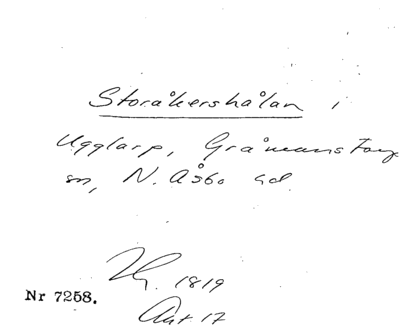 Storåkershålan i
Ugglarp, Gråmanstorp
sn, N. Åsbo hd.
1819
Nr 7258.
Akt. 17